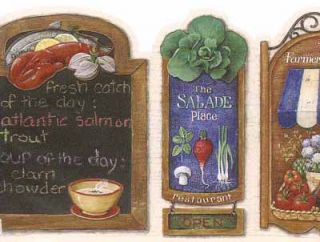 fresh catch
of the day:
atlantic salmon
trout
our of the day:
clam
chowder
The
SALADE
Place
restaurant
OPEN
Farmers